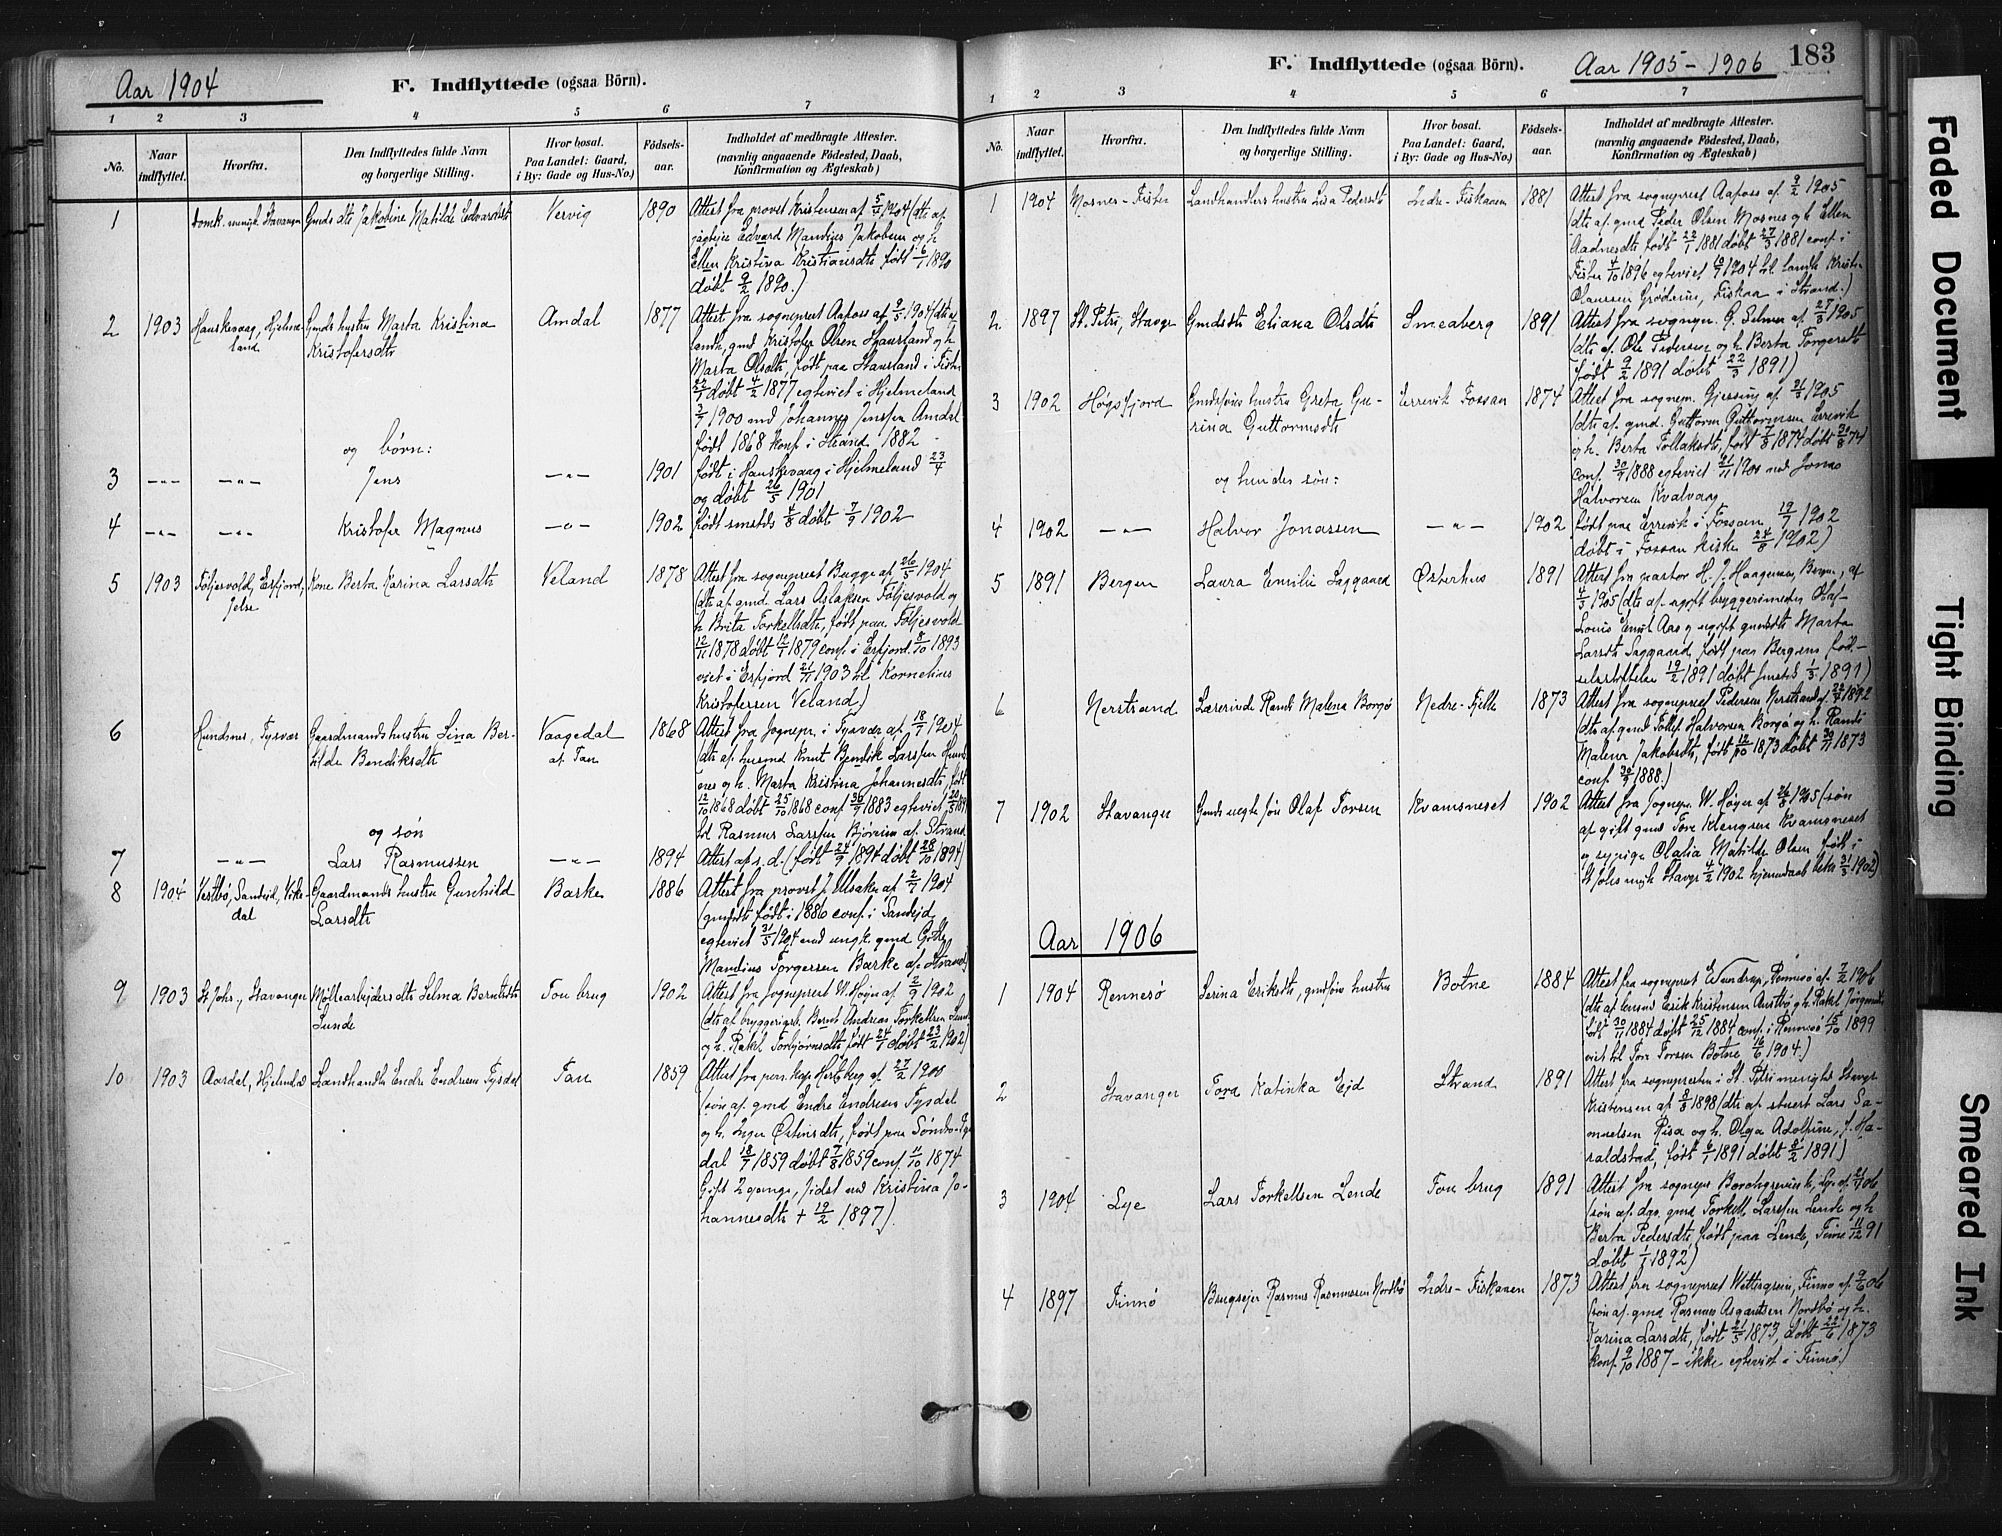 Aar 1904
F. Indflyttede (ogsaa Börn).
1 2 3 4 5 6 7
No.
Naar indflyttet.
Hvorfra.
Den Indflyttedes fulde Navn
og borgerlige Stilling.
Hvor bosat.
Paa Landet: Gaard,
i By: Gade og Hus-No.)
Födsels-
aar.
Indholdet af medbragte Attester.
(navnlig angaaende Födested, Daab,
Konfirmation og Ægteskab)
1 Domk. menigh Stavanger Gmds dtr Jakobine Matilde Edvardsdtr Nervig 1890 Attest fra provst Kristensen af 5/4 1904 (dtr af
Edvard Mandius Jakobsen og h
Ellen Kristina Kristiansdtr født 6/1 1890
døbt 9/2 1890.)
2 1903 Hauskevaag, Hjelme-
land Gmds hustru Marta Kristina
Kristofersdtr Amdal 1877 Attest fra sogneprest Aafoss af 9/5 1904 (dtr af
landh, gmd Kristofer Olsen Staursland og h
Marta Olsdtr, født paa Staursland i Fister
22/1 døbt 4/2 1877 egteviet i Hjelmeland
3/7 1900 med Johannes Jenssen Amdal
født 1868 konf. i Strand 1882
og børn:
3 -"- -"- Jens -"- 1901 født i Hauskevaag i Hjelmeland 23/4
og døbt 26/5 1901
4 -"- -"- Kristofer Magnus -"- 1902 født smstds 4/8 døbt 7/9 1902
5 1903 Føljesvold, Erfjord,
Jelse Kone Berta Karina Larsdtr Veland 1878 Attest fra sogneprest Bugge af 26/5 1904
(dtr af gmd Lars Aslaksen Føljesvold og
h Brita Torkellsdtr, født paa Føljesvold
12/11 1878 døbt 12/1 1879 conf. i Erfjord 8/10 1893
viet i Erfjord 21/11 1903 til Kornelius
Kristofersen Veland)
6 Hundsnes, Tysvær Gaardmandshustru Sina Ber-
tilde Bendiksdtr Vaagedal
af Tau 1868 Attest fra Sognepr i Tysvær af 18/7 1904
(dtr af husmd Knut Bendik Larssen Hunds-
nes og h. Marta Kristina Johannesdtr, født
12/10 1868 døbt 25/10 1868 conf 30/9 1883 egteviet
til Rasmus Larssen Bjøreim af Strand
og søn
7 -"- Lars Rasmussen -"- 1894 Attest af s.d. (født 24/9 1894 døbt 28/10 1894)
8 1904 Vestbø, Sandeid, Vike-
dal Gaardmands hustru Gunhild
Larsdtr Barke 1886 Attest fra provst J. Ulsaker af 2/7 1904
(gmdsdtr født i 1886 conf. i Sandeid
egteviet 31/5 1904 med ungk. gmd
Mandius Torgersen Barke af Strand)
9 1903 St Joh., Stavanger Møllearbejdersdtr Selma Berntsdtr
Lunde Tou brug 1902 Attest fra Sogneprest W. Høyer af 2/9 1902
(dtr af bryggeriarb. Bernt Andreas Torkellsen Lunde
og h. Rakel Torbjørnsdtr født 24/1 døbt 23/2 1902)
10 1903 Aardal, Hjelmeland Landhandler Endre Endresen Tysdal Tau 1859 Attest fra pers. kap Hertzberg af 27/2 1900
(søn af gmd Endre Endresen Tysdal
og h. Inger Østensdtr, født paa Søndre-Tys
dal 18/7 1859 døbt 7/8 1859 conf. 11/10 1874
Gift 2 gange, sidst med Kristina Jo-
hannesdtr † 19/2 1897).
F. Indflyttede (ogsaa Börn).
Aar 1905 - 1906
183
1 2 3 4 5 6 7
No.
Naar
indflyttet.
Hvorfra.
Den Indflyttedes fulde Navn
og borgerlige Stilling.
Hvor bosat.
Paa Landet: Gaard,
i By: Gade og Hus-No.)
Födsels-
aar.
Indholdet af medbragte Attester.
(navnlig angaaende Födested, Daab,
Konfirmation og Ægteskab)
1 1904 Mosnes-Fister Landhandlers hustru Lisa Pedersdtr Indre-Fiskaaen 1881 Attest fra sogneprest Aafoss af 9/2 1905
(dtr af gmd Peder Olsen Mosnes og h Ellen
Aadnesdtr født 22/1 1881 døbt 27/3 1881 conf. i
Fister 4/10 1896 egteviet 1904 til landh Kristen
Olaussen Grøderus, Fiskaa i Strand.)
2 1897 St. Petri, Stavgr Gmdsdtr Eliana Olsdtr Smedberg 1891 Attest fra sognepr. G. Selmer af 27/3 1905
(dtr af Ole Pedersen og h. Berta Torgersdtr
født 9/2 1891 døbt 22/3 1891)
3 1902 Høgsfjord Gmdsføies hustru Greta Gu-
rina Guttormsdtr Errevik Fossan 1874 Attest fra sognepr. Gjessing af 26/3 1905
(dtr af gmd. Guttorm Guttormsen Errevik
og h. Berta Tollaksdtr, født 7/8 1874 døbt 30/8 74
conf. 30/9 1888 egteviet 1900 med Jonas
Halvorsen Kvalvaag
og hendes søn:
4 1902 -"- Halvor Jonassen -"- 1902 født paa Errevik i Fossan 19/7 1902
døbt i Fossan kirke 24/8 1902)
5 1891 Bergen Laura Emilie Laggaard Østerhus 1891 Attest fra pastor H. J. Haagensen, Bergen, af
4/3 1905 (dtr af ugift byggeri Olaf
Louis Emil Aas og ugift gmdsdtr Marta
Larsdtr Laggaard, født paa Bergens fød-
selsstiftelse 19/2 1891 døbt smsteds 1/3 1891)
6 Nerstrand Lærerinde Randi Malena Borgø Nedre-Tjelta 1873 Attest fra sogneprest Pedersen Nerstrand af 1892
(dtr af gmd Tollef Halvorsen Borgø og h. Randi
Malene Jakobsdtr, født 12/10 1873 døbt 30/11 1873
conf. 30/9 1888.)
7 1902 Stavanger Gmds uegte søn Olaf Torsen Kvamsneset 1902 Attest fra Sognepr. W. Høyer af 26/3 1905 (søn
af gift gmd Tore Klengsen Kvamsneset
og sypige Olalia Matilde Olsen født i
St Johs mgh. Stavgr 4/2 1902 hjemmedaab bekr 31/3 1902)
Aar 1906
1 1904 Rennesø Serina Eriksdtr, gmdsføies hustru Botne 1884 Attest fra sogneprest , Rennesø af 7/2 1906
(dtr af Erik Kristensen Austbø og h. Rakel Jørgensdtr
født 30/11 1884 døbt 25/12 1884 conf. i Rennesø 15/10 1899
viet til Tore Torsen Botne 16/6 1904.)
2 Stavanger Tora Katinka Ejd Strand 1891 Attest fra sognepresten i St. Petri menighed Stavgr
Kristensen af 8/8 1898 (dtr af stuert Lars Sa-
muelsen Risa og h. Olga Adolfine, f. Ha-
raldstad, født 6/1 1891 døbt 8/2 1891)
3 1904 Lye Lars Torkellsen Lende Tou brug 1891 Attest fra sognepr Borchgrevink, Lye af 06
(søn af gmd Torkell Larssen Lende og h
Berta Pedersdtr, født paa Lende, Time 11/12 91
døbt 1/1 1892)
4 1897 Finnø Brugsejer Rasmus Rasmussen Nordbø Indre-Fiskaaen 1873 Attest fra sogneprest Wettergreen, Finnø af 06
(søn af gmd Rasmus Asgautsen Nordbø og h.
Karina Larsdtr, født 21/5 1873, døbt 22/6 1873
konf. 9/10 1887 - ikke egteviet i Finnø)
Faded Document
Tight Binding
Smeared Ink